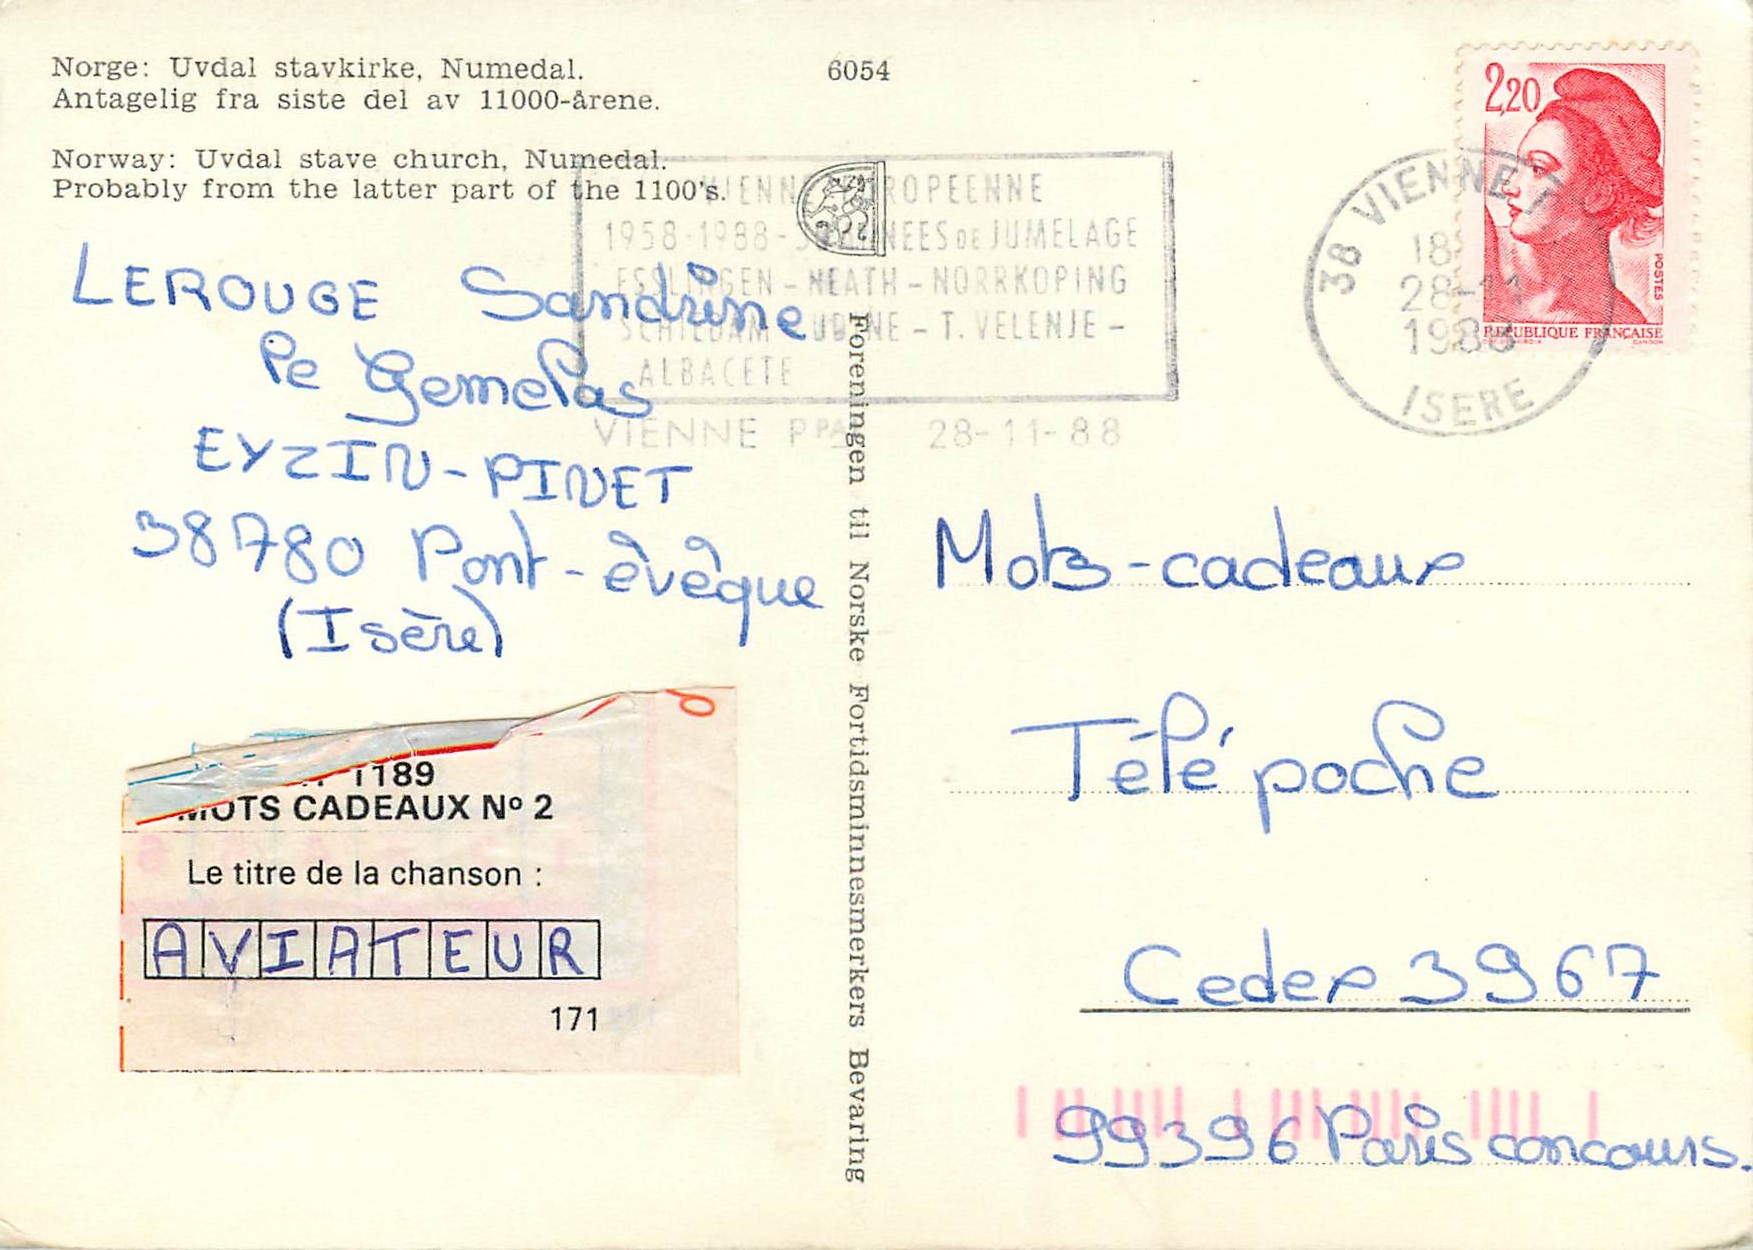 Norge: Uvdal stavkirke, Numedal.
Antagelig fra siste del av 11000-årene.
6054
Norway: Uvdal stave church, Numedal.
Probably from the latter part of the 1100's.
LEROUGE Sandrine
Le Gemelas
EYZIN-PINET
38780 Pont-évêque
(Isère)
1189
MOTS CADEAUX Nº 2
Le titre de la chanson :
AVIATEUR
171
Foreningen til Norske Fortidsminnesmerkers Bevaring
VIENNE EUROPEENNE
1958-1988-30 ANNEES DE JUMELAGE
ESSLINGEN - NEATH - NORRKOPING
SCHIEDAM - UDINE - T. VELENJE -
ALBACETE
VIENNE PPAL 28-11-88
38 VIENNE
18
28-11
1988
ISERE
2,20
POSTES
REPUBLIQUE FRANÇAISE
Mots-cadeaux
Télé poche
Cedex 3967
99396 Paris concours.